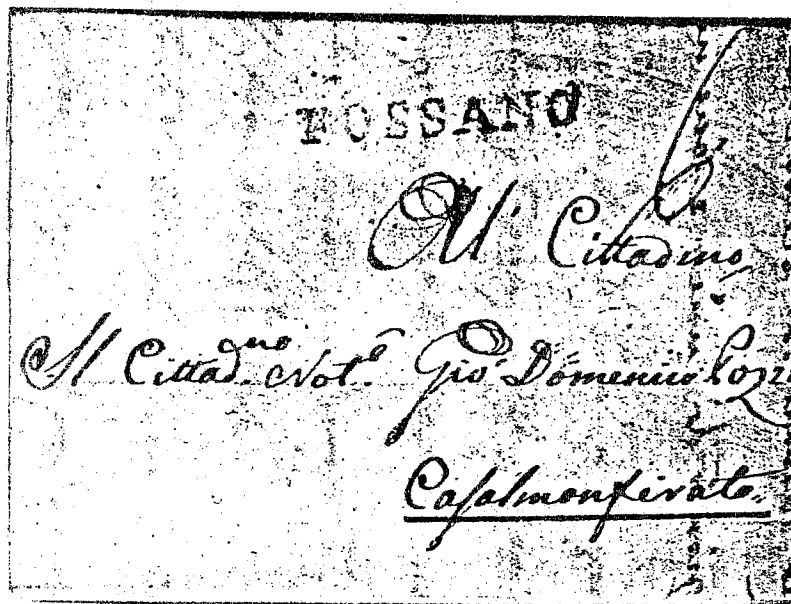 FOSSANO
All' Cittadino
Al Cittad.no Not.e Gio Domenico
Casalmonferato.